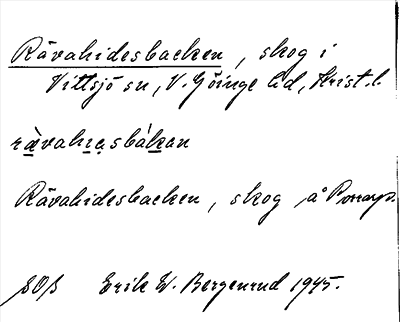 Rävahidesbacken, skog i
Vittsjö sn, V. Göinge hd, Krist. l.
rävahiasbakan
Rävahidesbacken, skog å Porrarp.
SOB Erik W. Bergenrud 1945.